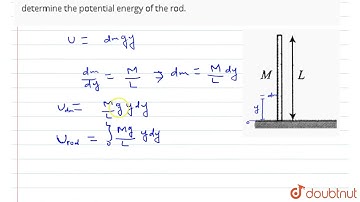 determine the potential energy of the rod.
U = dmgy
dm/dy = M/L → dm = M/L dy
U_dm = M/L g y dy
U_rod = ∫₀ Mg/L y dy
M
L
dm
y
doubtnut